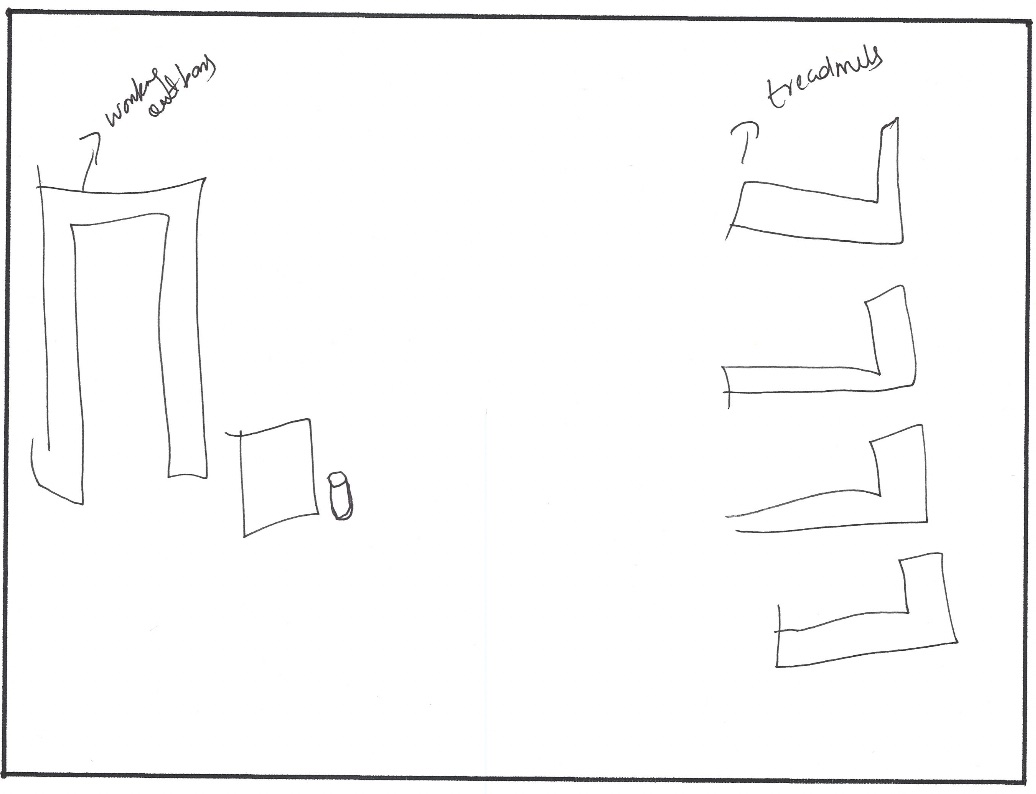 working
out bars
treadmills